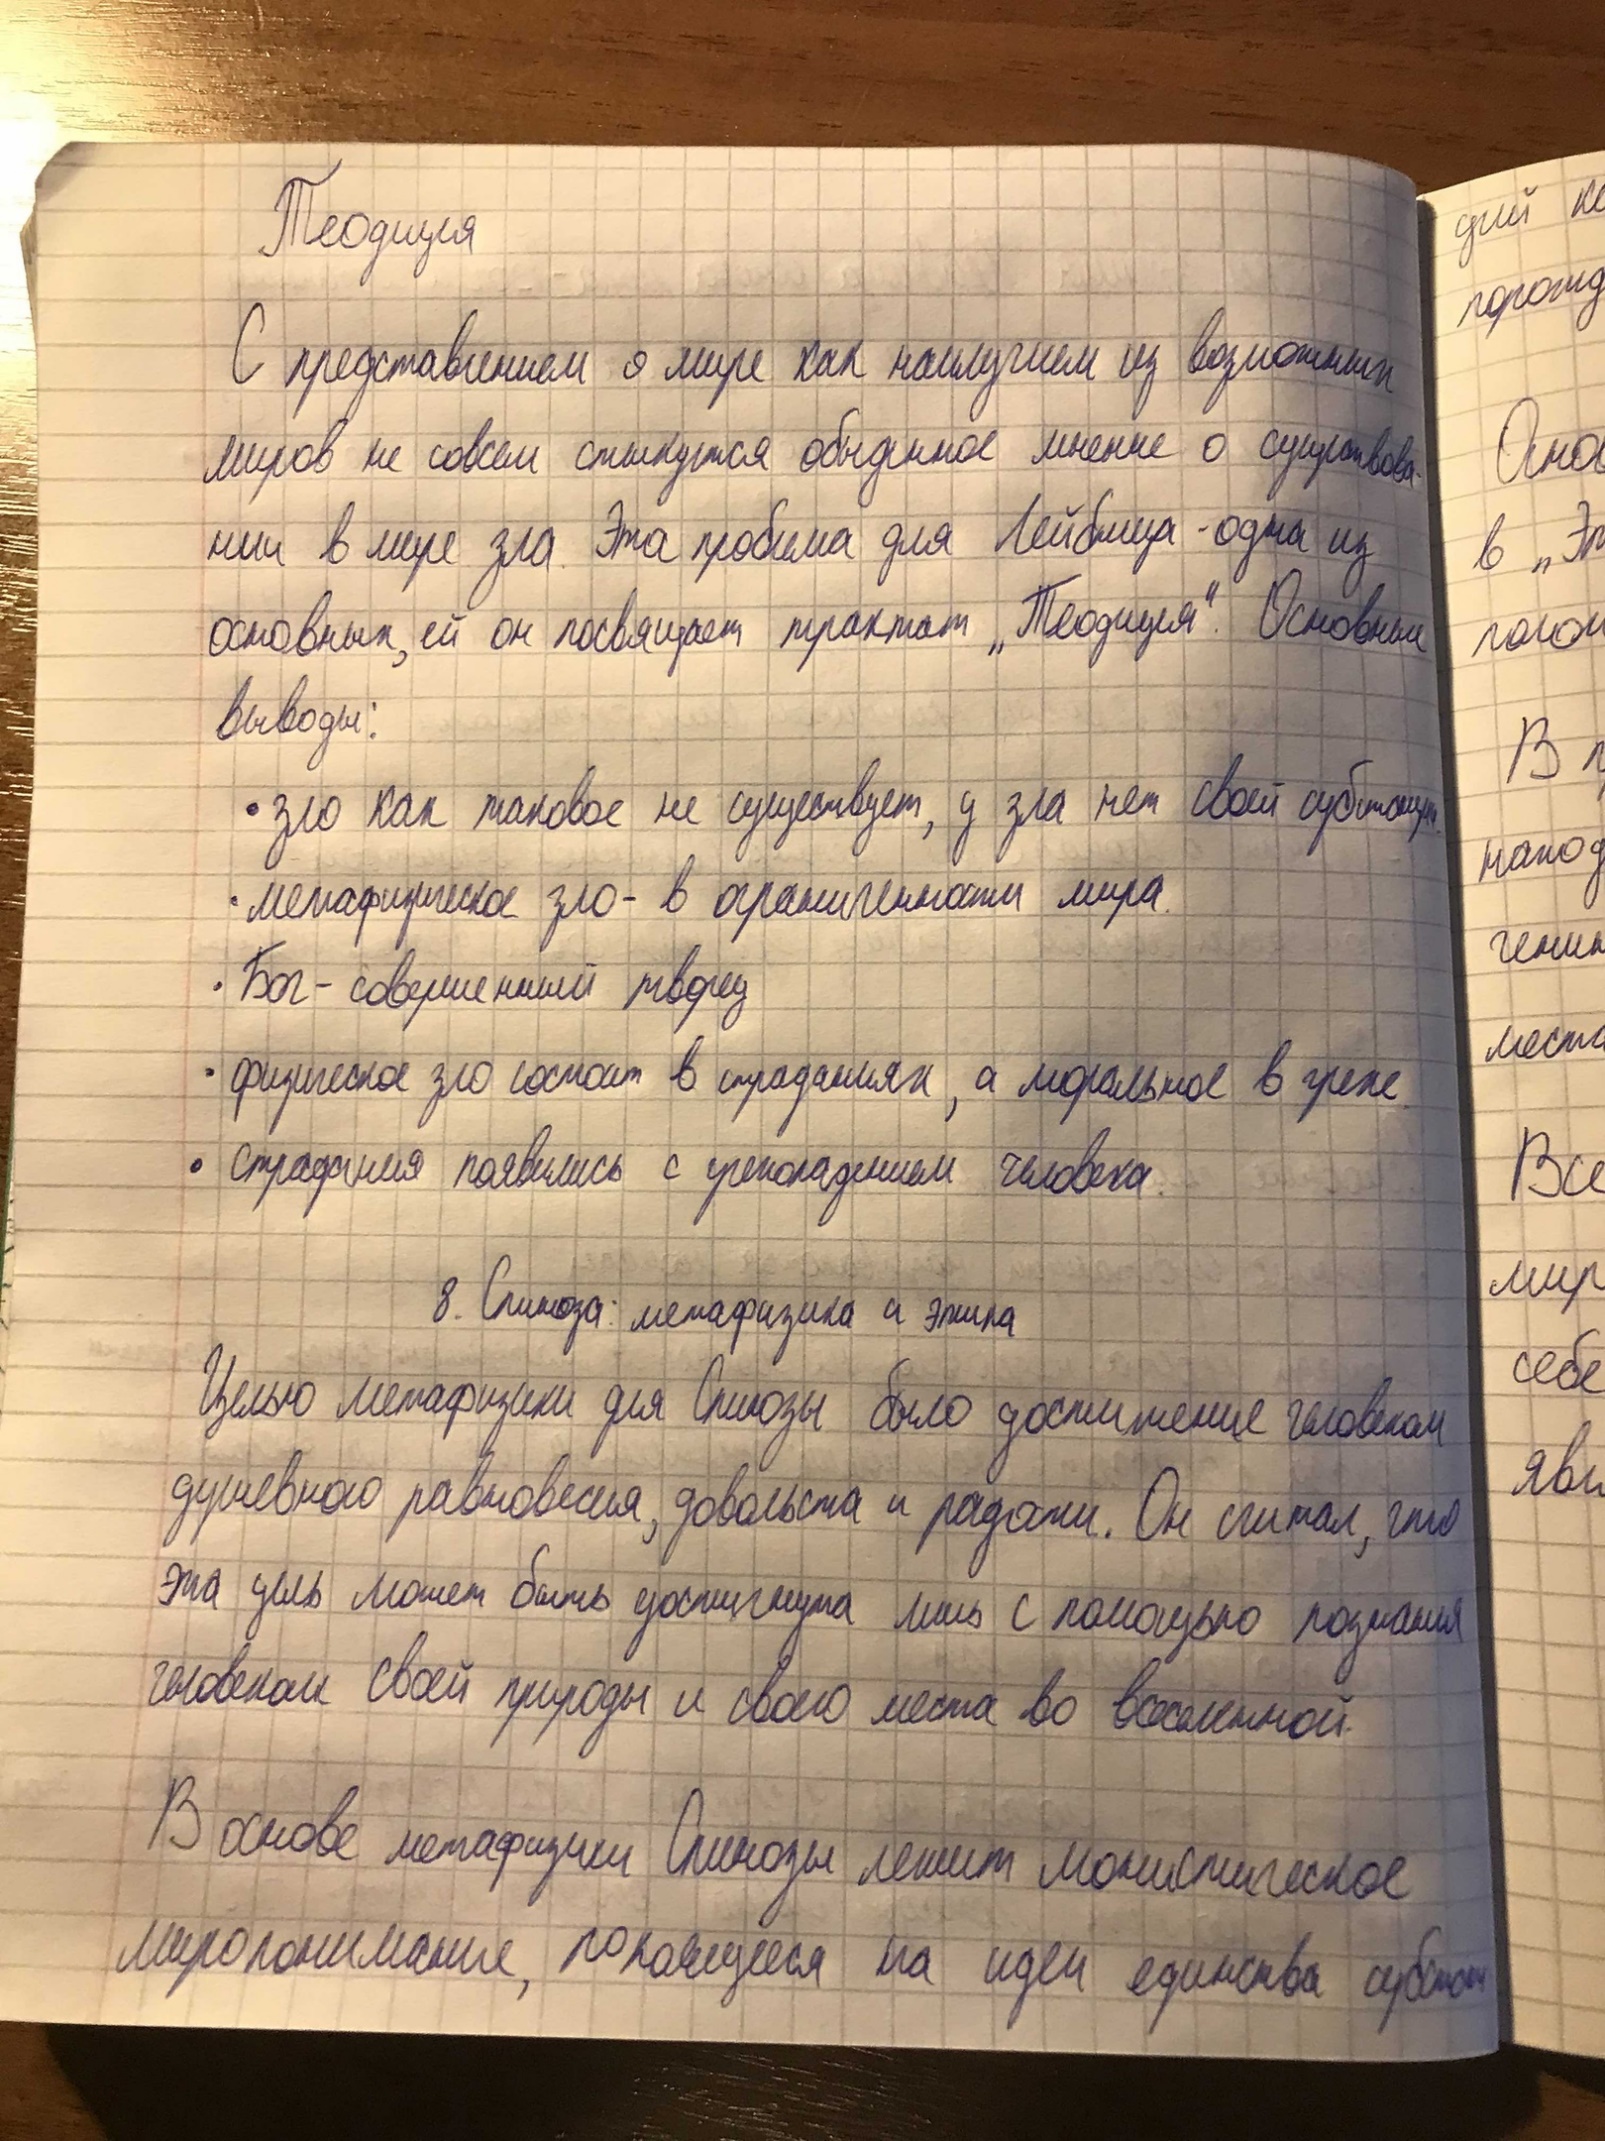 Теодицея
С представлением о мире как наилучшем из возможных
миров не совсем стыкуется обыденное мнение о существова-
нии в мире зла. Эта проблема для Лейбница - одна из
основных, ей он посвящает трактат „Теодицея“. Основные
выводы:
• зло как таковое не существует, у зла нет своей субстанции.
• метафизическое зло - в ограниченности мира.
• Бог - совершенный творец
• физическое зло состоит в страданиях, а моральное в грехе.
• страдания появились с грехопадением человека.
8. Спиноза: метафизика и этика
Целью метафизики для Спинозы было достижение человеком
душевного равновесия, довольста и радости. Он считал, что
эта цель может быть достигнута лишь с помощью познания
человеком своей природы и своего места во вселенной.
В основе метафизики Спинозы лежит монистическое
миропонимание, покоящееся на идеи единства субстан
дий
порожд
в „Эт
В
места
Все
мир
себе